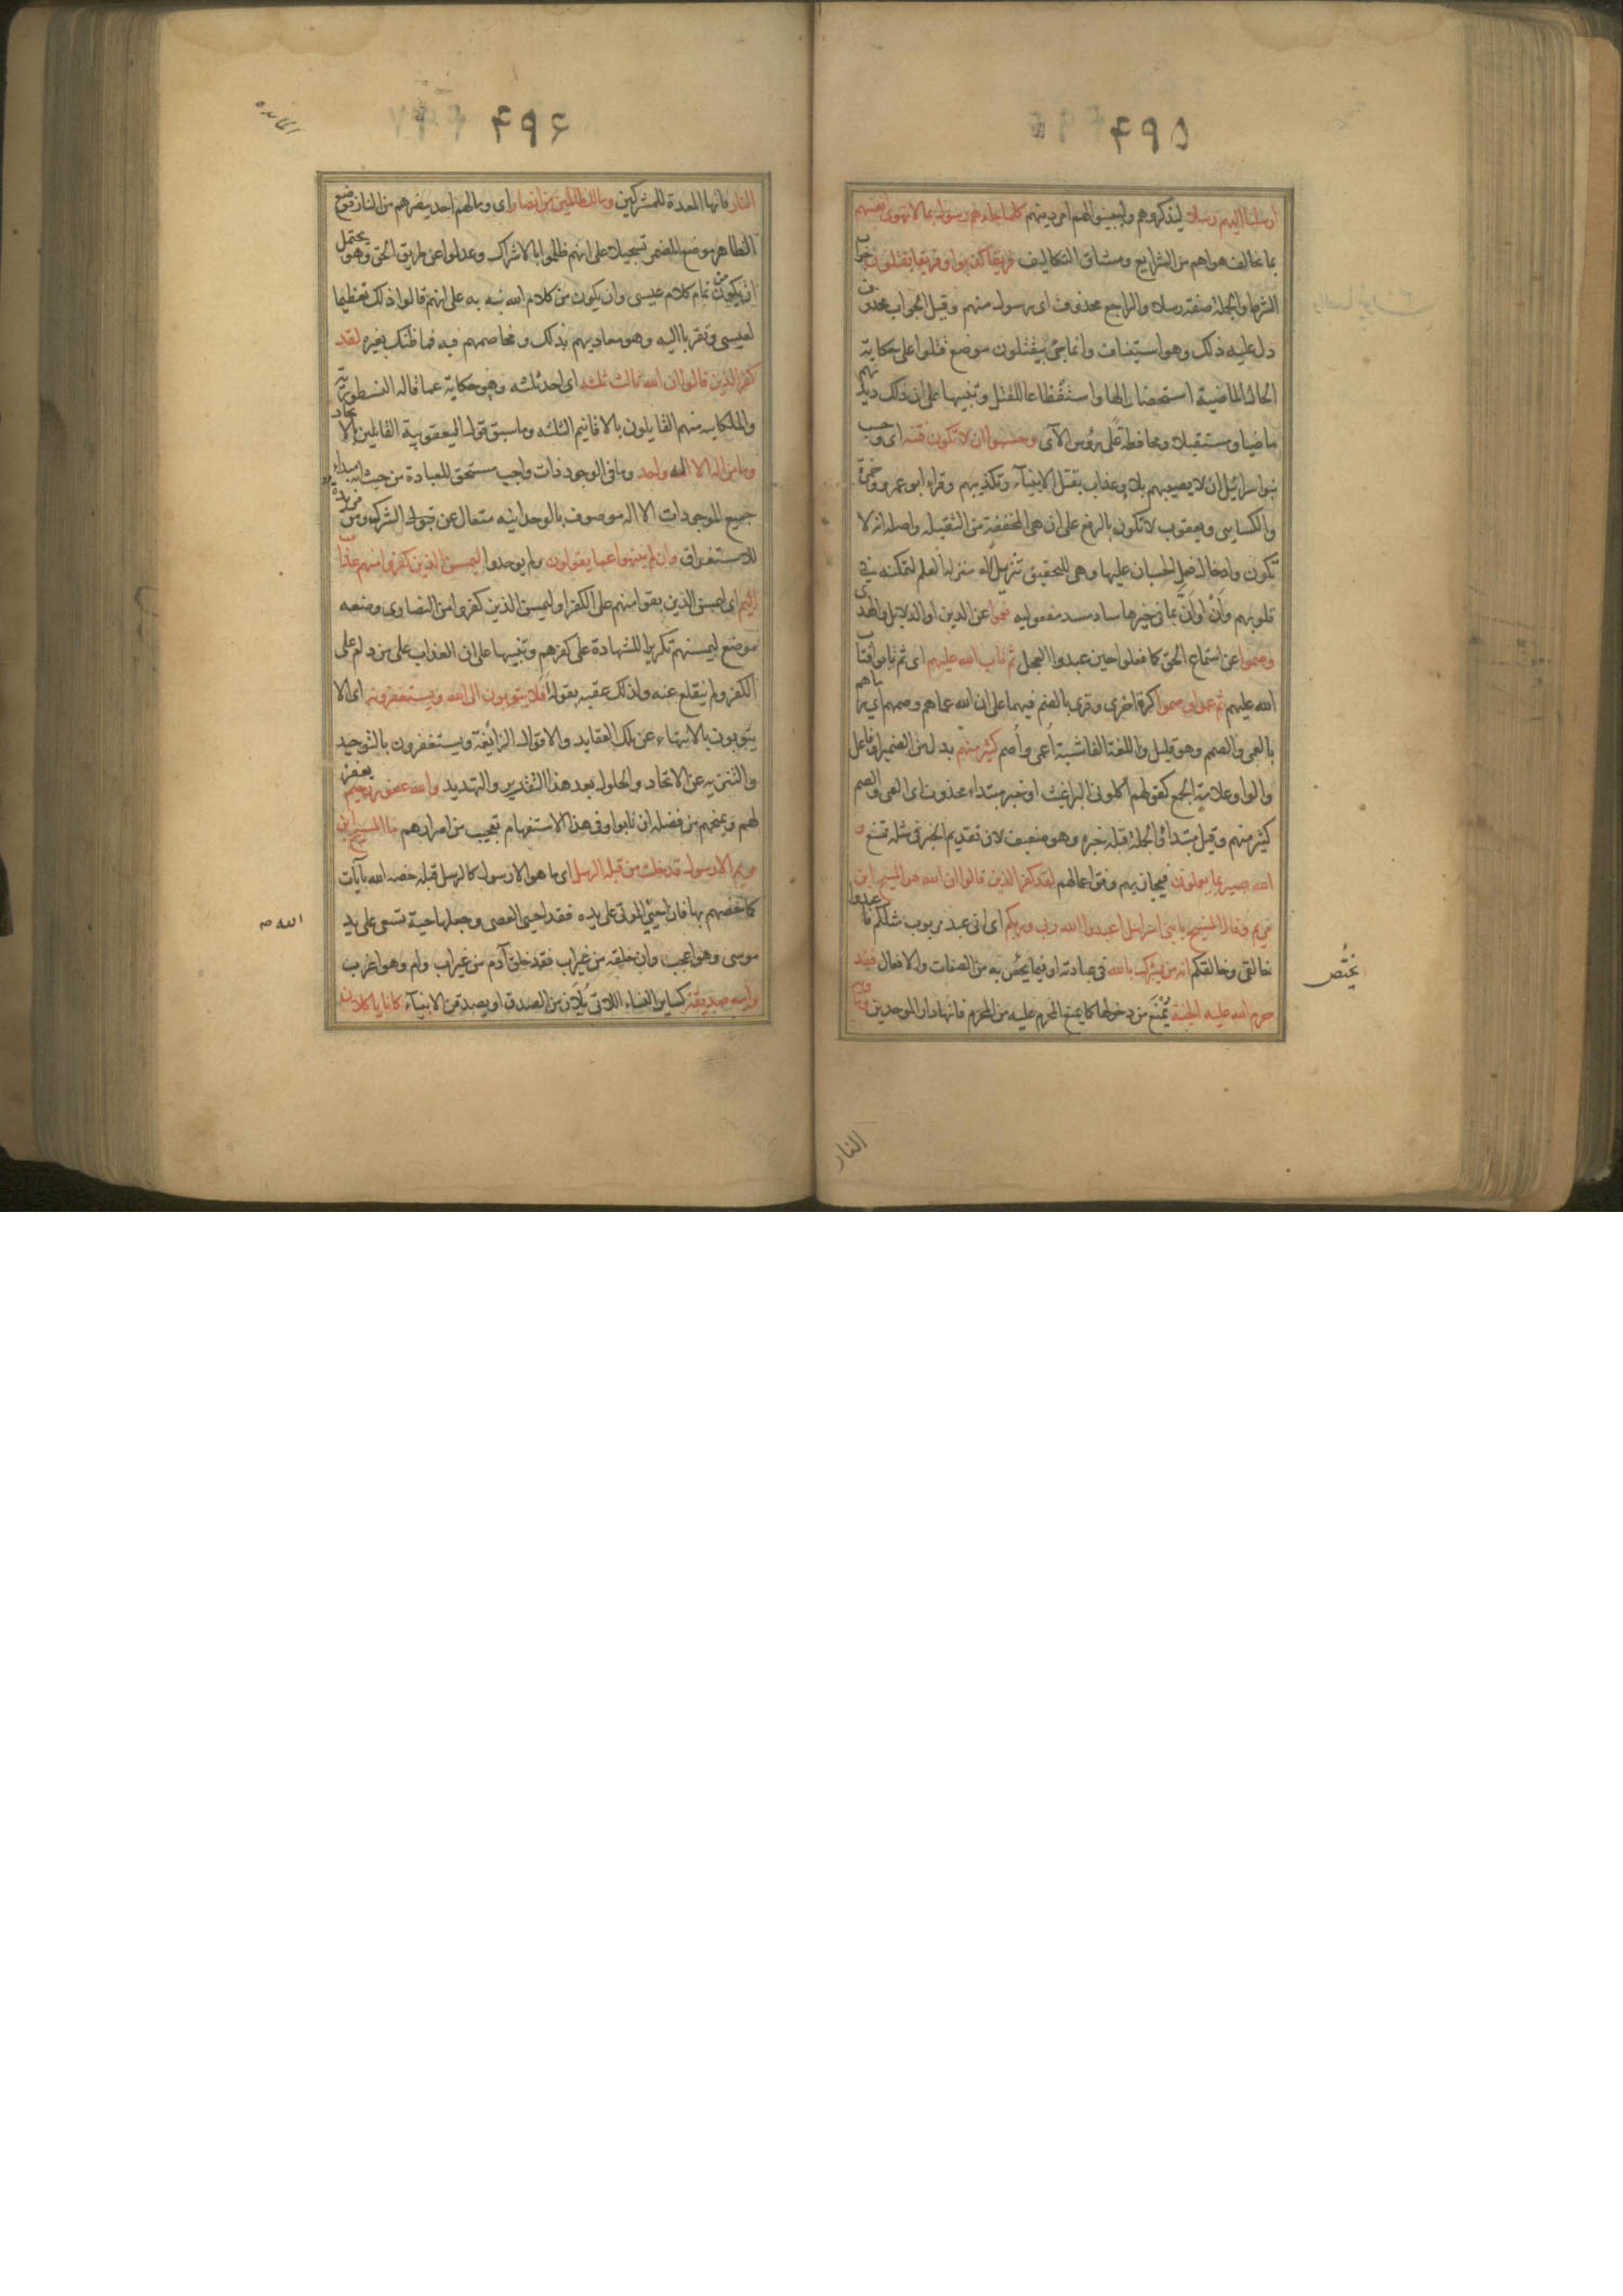 ۴۹۵
ارسلنا اليهم رسلا ليذكروهم وليبينوا لهم امر دينهم كلما جاءهم رسول بما لا تهوى انفسهم
بما يخالف هواهم من الشرايع ومشاق التكاليف فريقا كذبوا وفريقا يقتلون جواب
الشرط والجملة صفة رسلا والراجع محذوف اى رسول منهم وقيل الجواب محذوف
دل عليه ذلك وهو استيناف وانما جئ بيقتلون موضع قتلوا على حكاية
الحال الماضية استحضارا لها واستفظاعا للقتل وتنبيها على ان ذلك ديدنهم
ماضيا ومستقبلا ومحافظة على رؤس الآى وحسبوا ان لا تكون فتنة اى وحسب
بنوا سرائيل ان لا يصيبهم بلاء وعذاب بقتل الانبيآء وتكذيبهم وقراء ابو عمرو وحمزة
والكسايى ويعقوب لا تكون بالرفع على ان هى المخففة من الثقيلة واصله انه لا
تكون وادخال فعل الحسبان عليها وهى للتحقيق تنزيل له منزلة العلم لتمكنه فى
قلوبهم وأن او أنّ بما فى خيرها ساد مسد مفعوليه فعموا عن الدين او الدلايل والهدى
وصموا عن استماع الحق كما فعلوا حين عبدوا العجل ثم تاب الله عليهم اى ثم تابوا فتاب
الله عليهم ثم عموا وصموا كرة اخرى وقرئ بالضم فيهما على ان الله عماهم وصمهم اى رماهم
بالعمى والصمم وهو قليل واللغة الفاشية اعمى وأصم كثير منهم بدل من الضمير او فاعل
والواو علامة الجمع كقولهم أكلونى البراغيث او خبر مبتداء محذوف اى العمى والصم
كثير منهم وقيل مبتدا والجملة قبله خبره وهو ضعيف لان تقديم الخبر فى مثله ممتنع و
الله بصير بما يعملون فيجازيهم وفق اعمالهم لقد كفر الذين قالوا ان الله هو المسيح ابن
مريم وقال المسيح يا بنى اسرائيل اعبدوا الله ربى وربكم اى انى عبد مربوب مثلكم فاعبدوا
خالقى وخالقكم انه من يشرك بالله فى عبادته او فيما يختص به من الصفات والافعال فقد
حرم الله عليه الجنة يُمْنَع من دخولها كما يمنع المحرم عليه من المحرم فانها دار الموحدين وماويه
يختُص
النار
۴۹۶
المايده
النار فانها المعدة للمشركين وما للظالمين من انصار اى وما لهم احد ينصرهم من النار فوضع
الظاهر موضع المضمر تسجيلا على انهم ظلموا بالاشراك وعدلوا عن طريق الحق وهو يحتمل
ان يكون من تمام كلام عيسى وان يكون من كلام الله نبه به على انهم قالوا ذلك تعظيما
لعيسى وتقربا اليه وهو معاديهم بذلك ومخاصمهم فيه فما ظنك بغيره لقد
كفر الذين قالوا ان الله ثالث ثلثه اى احد ثلثه وهو حكاية عما قاله النسطورية
والملكانيه منهم القايلون بالاقانيم الثلثه وما سبق قول اليعقوبية القايلين بالاتحاد
وما من اله الا اله واحد وما فى الوجود ذات واجب مستحق للعبادة من حيث انه مبداء
جميع الموجودات الا اله موصوف بالوحدانيه متعال عن قبول الشركه ومن مزيدة
للاستغراق وان لم ينتهوا عما يقولون ولم يوحدوا ليمسن الذين كفروا منهم عذاب
اليم اى ليمسن الذين بقوا منهم على الكفر او ليمسن الذين كفروا من النصاوى وضعه
موضع ليمسنهم تكريرا للشهادة على كفرهم وتنبيها على ان العذاب على من دام على
الكفر ولم ينقلع عنه ولذلك عقبه بقوله أفلا يتوبون الى الله ويستغفرونه اى الا
يتوبون بالانتهاء عن تلك العقايد والاقوال الزائغة ويستغفرون بالتوحيد
والتنزيه عن الاتحاد والحلول بعد هذا التقدير والتهديد والله غفور رحيم يغفر
لهم ويمنحهم من فضله ان تابوا وفى هذا الاستفهام تعجيب من اصرارهم ما المسيح ابن
مريم الا رسول قد خلت من قبله الرسل اى ما هو الا رسول كالرسل قبله خصه الله بآيات
كما خصهم بها فان احيى الموتى على يده فقد احيى العصى وجعلها حية تسعى على يد
موسى وهو اعجب وان خلقه من غير اب فقد خلق آدم من غير اب وام وهو اغرب
وامه صديقة كساير النساء اللاتى يُلازمن الصدق او يصدقن الانبيآء كانا ياكلان
الله